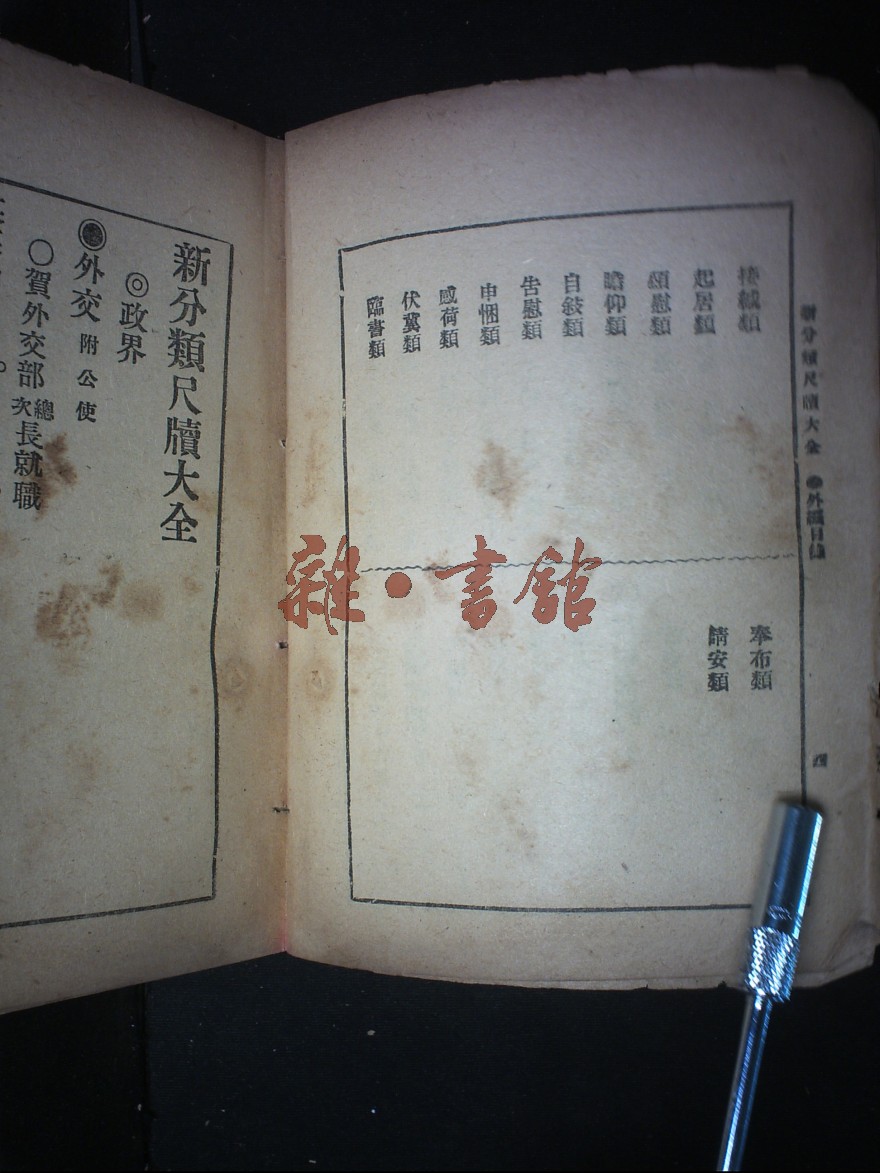 新分類尺牘大全
外
四
接緘類
起居類
頌慰類
瞻仰類
自敍類
告慰類
申悃類
感荷類
伏冀類
臨書類
奉布類
請安類
雜·書館
新分類尺牘大全
◎政界
外交 附公使
○賀外交部總次長就職